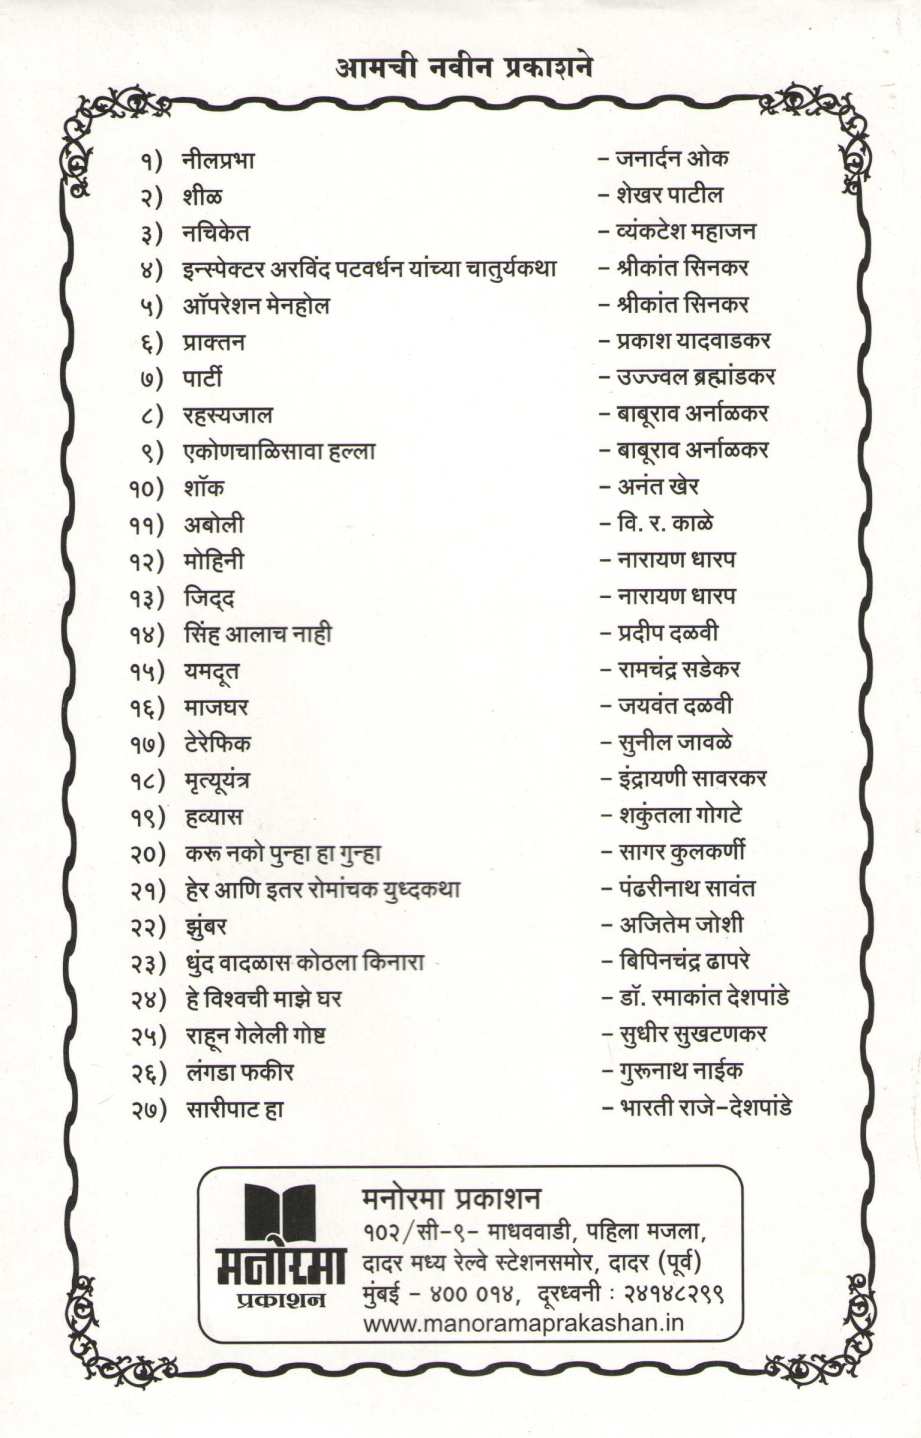 आमची नवीन प्रकाशने
१) नीलप्रभा – जनार्दन ओक
२) शीळ – शेखर पाटील
३) नचिकेत – व्यंकटेश महाजन
४) इन्स्पेक्टर अरविंद पटवर्धन यांच्या चातुर्यकथा – श्रीकांत सिनकर
५) ऑपरेशन मेनहोल – श्रीकांत सिनकर
६) प्राक्तन – प्रकाश यादवाडकर
७) पार्टी – उज्ज्वल ब्रह्मांडकर
८) रहस्यजाल – बाबूराव अर्नाळकर
९) एकोणचाळिसावा हल्ला – बाबूराव अर्नाळकर
१०) शॉक – अनंत खेर
११) अबोली – वि. र. काळे
१२) मोहिनी – नारायण धारप
१३) जिद्द – नारायण धारप
१४) सिंह आलाच नाही – प्रदीप दळवी
१५) यमदूत – रामचंद्र सडेकर
१६) माजघर – जयवंत दळवी
१७) टेरेफिक – सुनील जावळे
१८) मृत्यूयंत्र – इंद्रायणी सावरकर
१९) हव्यास – शकुंतला गोगटे
२०) करू नको पुन्हा हा गुन्हा – सागर कुलकर्णी
२१) हेर आणि इतर रोमांचक युध्दकथा – पंढरीनाथ सावंत
२२) झुंबर – अजितेम जोशी
२३) धुंद वादळास कोठला किनारा – बिपिनचंद्र ढापरे
२४) हे विश्वची माझे घर – डॉ. रमाकांत देशपांडे
२५) राहून गेलेली गोष्ट – सुधीर सुखटणकर
२६) लंगडा फकीर – गुरूनाथ नाईक
२७) सारीपाट हा – भारती राजे-देशपांडे
मनोरमा
प्रकाशन
मनोरमा प्रकाशन
१०२/सी-९- माधववाडी, पहिला मजला,
दादर मध्य रेल्वे स्टेशनसमोर, दादर (पूर्व)
मुंबई - ४०० ०१४, दूरध्वनी : २४१४८२९९
www.manoramaprakashan.in